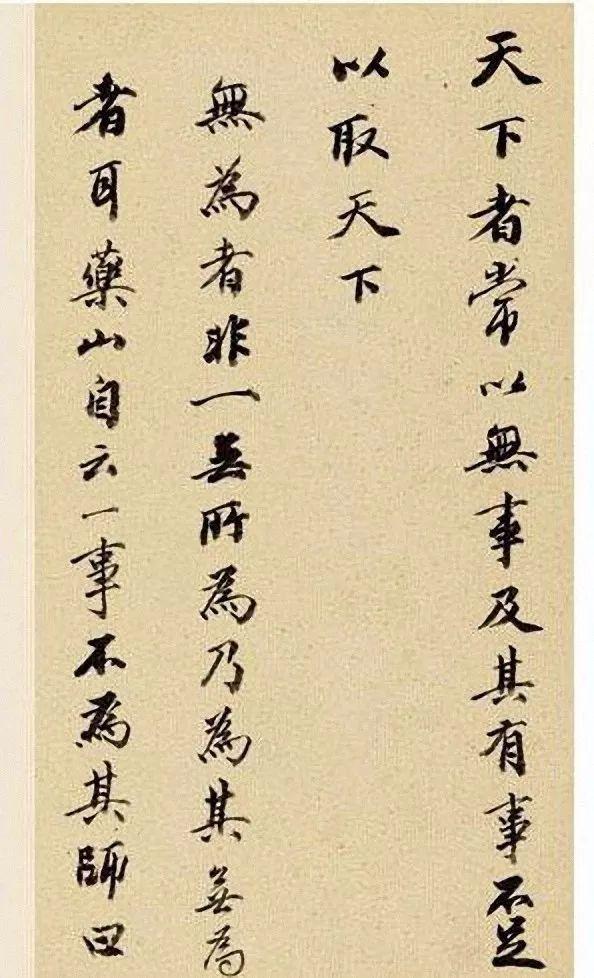 天下者常以無事及其有事不足
以取天下
無為者非一無所為乃為其無為
者耳藥山自云一事不為其師曰